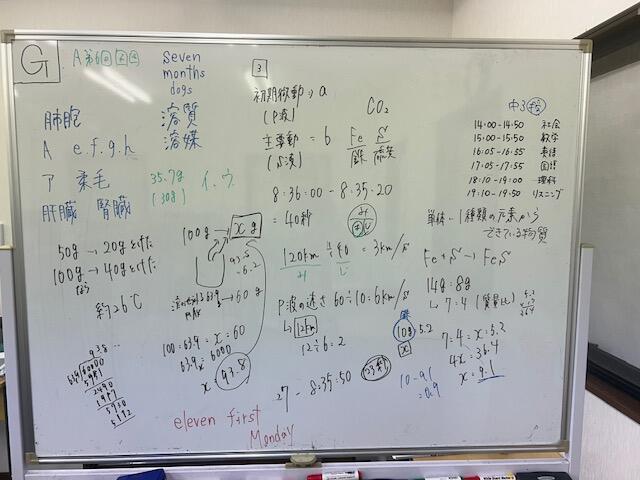 G
A 第6回
seven
months
dogs
肺胞
溶質
溶媒
A e.f.g.h
ア 柔毛
35.7g
(30g)
イ.ウ
肝臓 腎臓
50g → 20gとけた
100g → 40gとけた
なら
約26℃
100g → x g
→ 60g
100:63.9 = x:60
63.9x = 6000
x = 93.8
93.8
eleven first
Monday
3
初期微動 → a
(P波)
主要動 = b
(S波)
CO₂
Fe S
鉄 硫黄
8:36:00 - 8:35:20
= 40秒
120km ÷ 40 = 3km/s
P波の速さ 60÷10=6km/s
→ 12km
12÷6=2
27 - 8:35:50
23秒
中3
14:00-14:50 社会
15:00-15:50 数学
16:05-16:55 英語
17:05-17:55 国語
18:10-19:00 理科
19:10-19:50 リスニング
単体 - 1種類の元素から
できている物質
Fe + S → FeS
14g:8g
→ 7:4 (質量比)
10g 5.2
x
7:4 = x:5.2
4x = 36.4
x = 9.1
10-9.1
=0.9